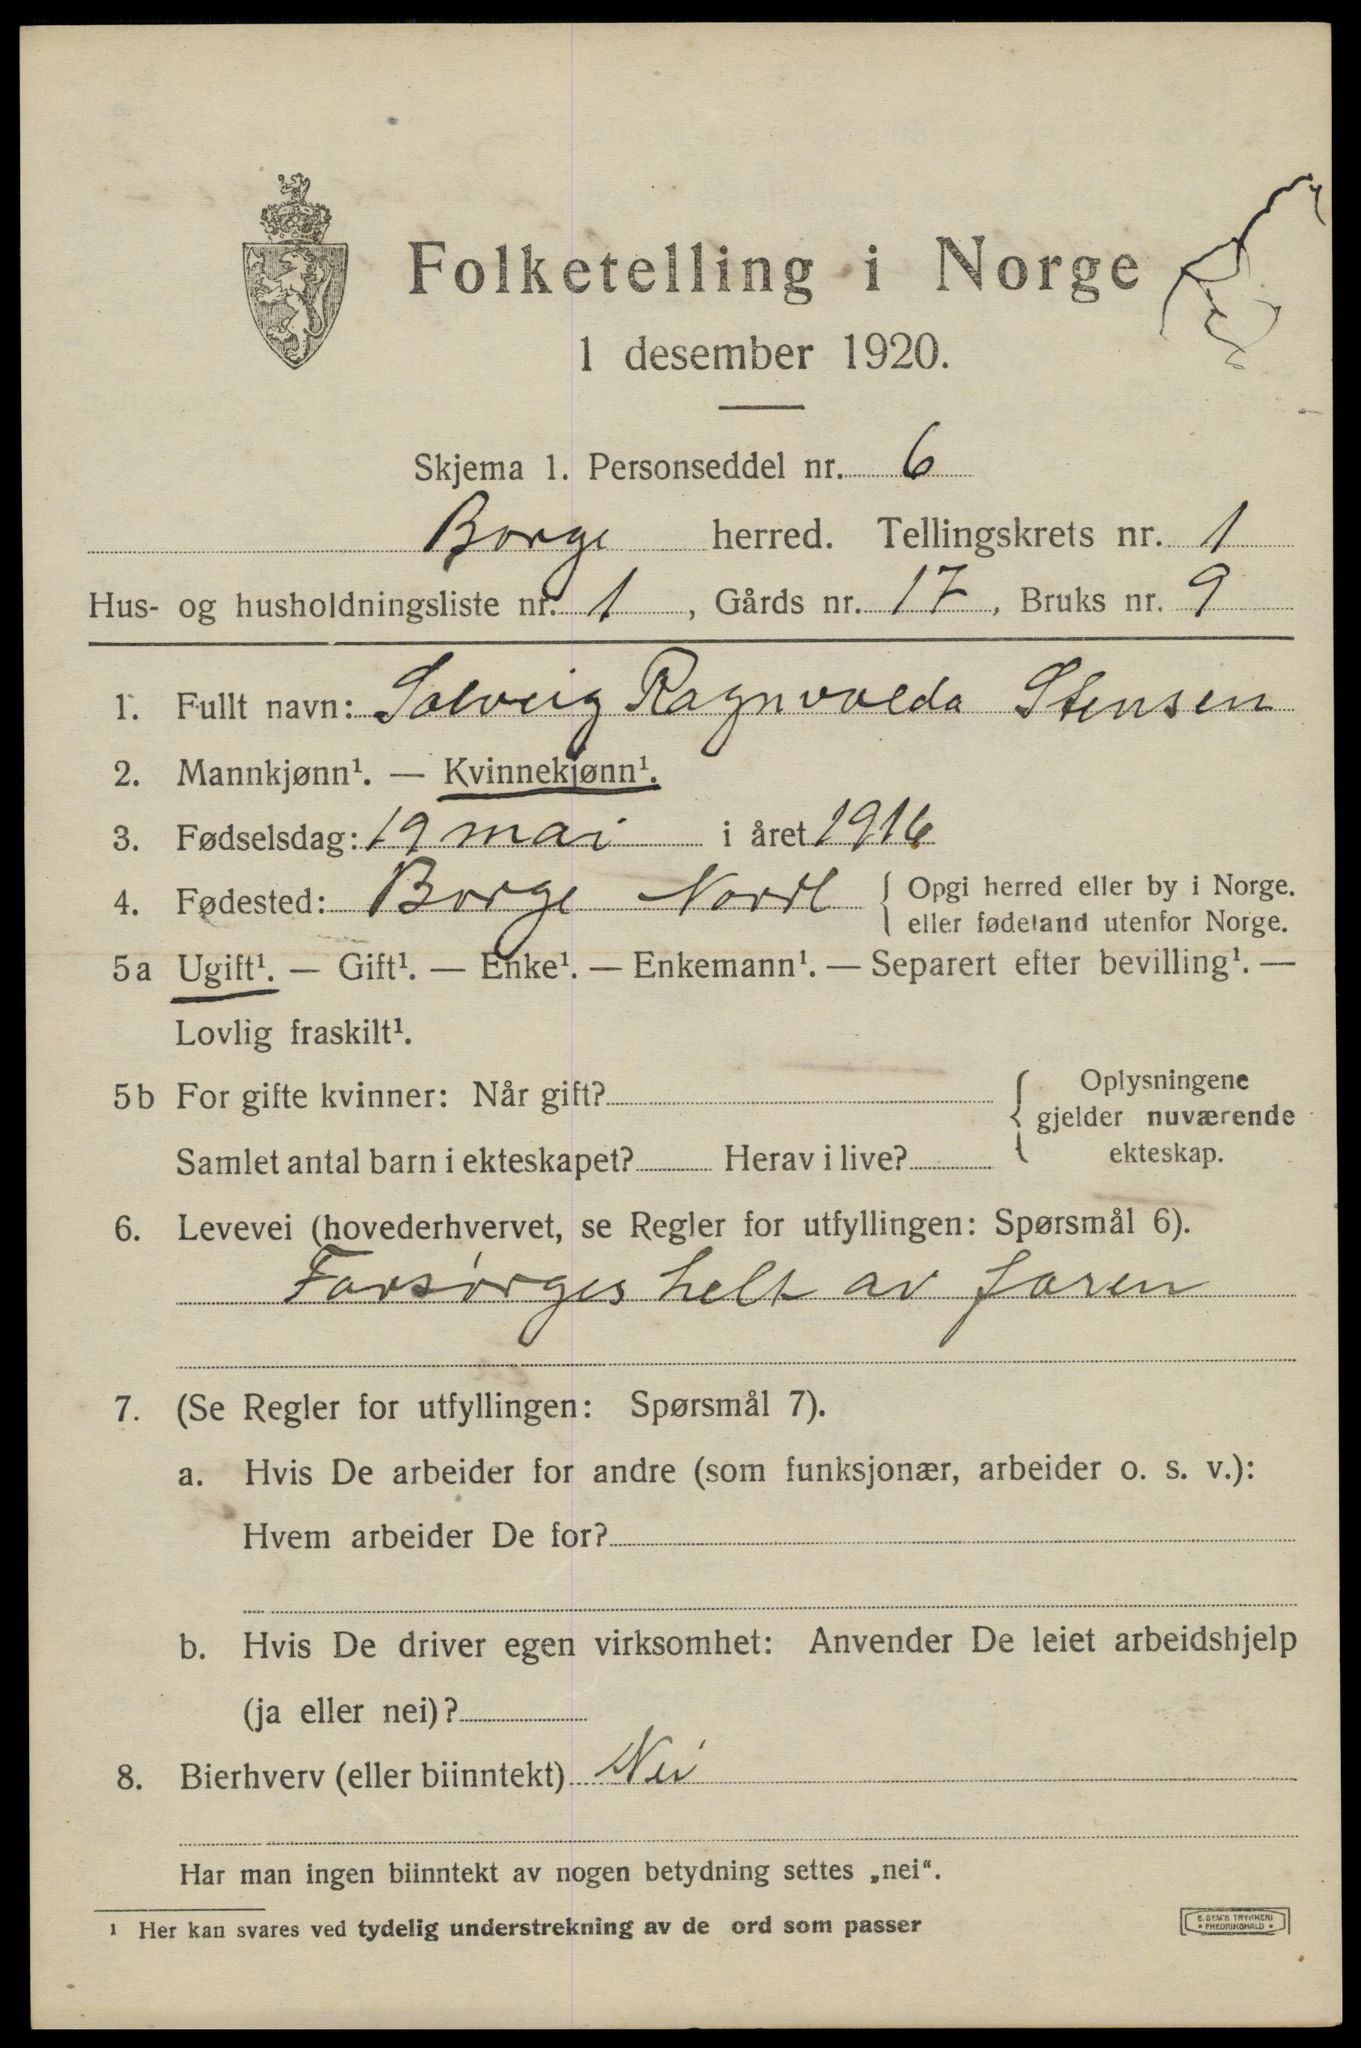 Folketelling i Norge
1 desember 1920.
Skjema 1. Personseddel nr. 6
Borge herred. Tellingskrets nr. 1
Hus- og husholdningsliste nr. 1, Gårds nr. 17, Bruks nr. 9
1. Fullt navn: Solveig Ragnvalda Stensen
2. Mannkjønn¹. — Kvinnekjønn¹.
3. Fødselsdag: 19 mai i året 1916
4. Fødested: Borge Nordl { Opgi herred eller by i Norge.
eller fødeland utenfor Norge.
5a Ugift¹. — Gift¹. — Enke¹. — Enkemann¹. — Separert efter bevilling¹. —
Lovlig fraskilt¹.
5b For gifte kvinner: Når gift?
Samlet antal barn i ekteskapet? Herav i live?
{ Oplysningene
gjelder nuværende
ekteskap.
6. Levevei (hovederhvervet, se Regler for utfyllingen: Spørsmål 6).
Forsørges helt av faren
7. (Se Regler for utfyllingen: Spørsmål 7).
a. Hvis De arbeider for andre (som funksjonær, arbeider o. s. v.):
Hvem arbeider De for?
b. Hvis De driver egen virksomhet: Anvender De leiet arbeidshjelp
(ja eller nei)?
8. Bierhverv (eller biinntekt) Nei
Har man ingen biinntekt av nogen betydning settes „nei“.
¹ Her kan svares ved tydelig understrekning av de ord som passer
E. SEM'S TRYKKERI
• FREDRIKSHALD •